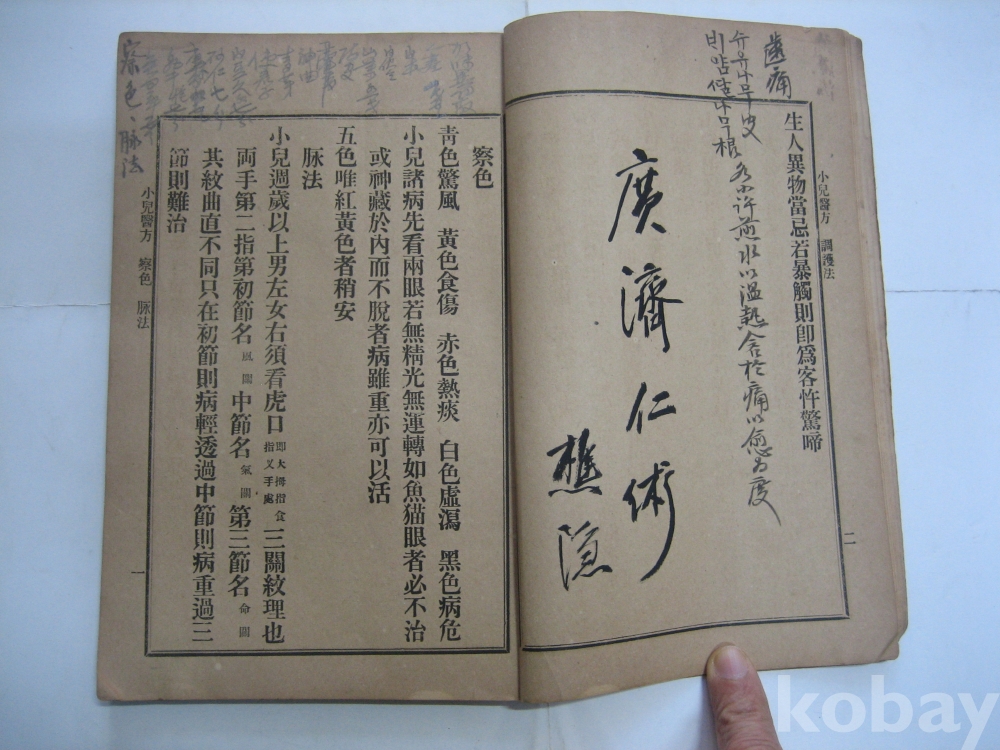 小兒醫方 調護法 二
生人異物當忌若暴觸則卽爲客忤驚啼
齒痛
슈유나무皮
나무根 各小許煎水以溫熱含於痛以愈爲度
廣濟仁術
樵隱
察色
靑色驚風 黃色食傷 赤色熱痰 白色虛瀉 黑色病危
小兒諸病先看兩眼若無精光無運轉如魚猫眼者必不治
或神藏於內而不脫者病雖重亦可以活
五色唯紅黃色者稍安
脉法
小兒週歲以上男左女右須看虎口卽大拇指食指叉手處三關紋理也
両手第二指第初節名風關中節名氣關第三節名命關
其紋曲直不同只在初節則病輕透過中節則病重過三
節則難治
小兒醫方 察色 脉法 一
察色、脉法
kobay